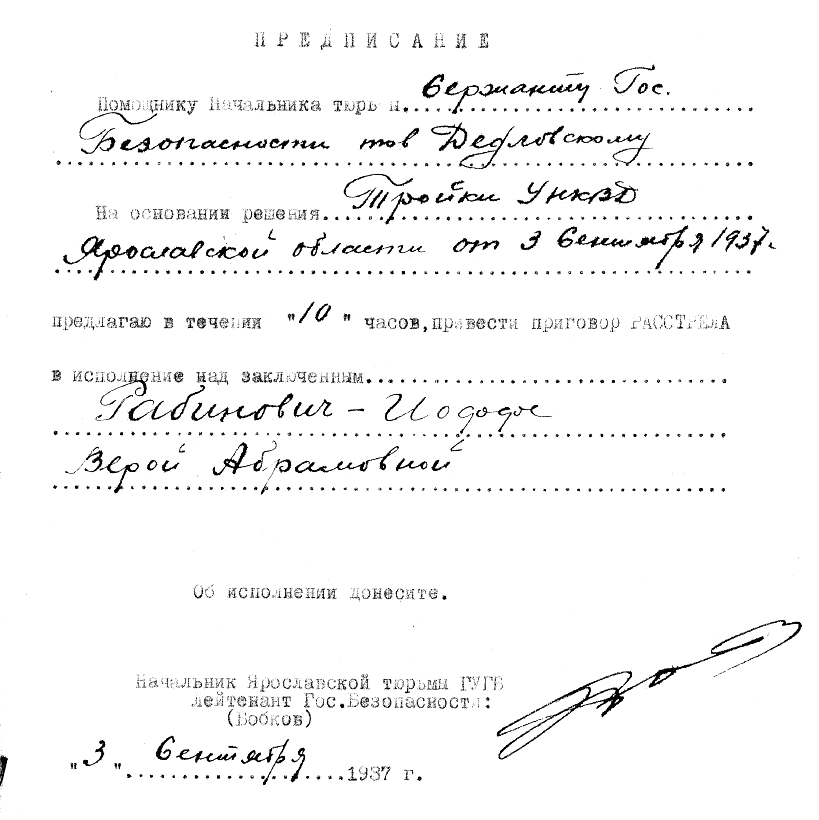 ПРЕДПИСАНИЕ
Помощнику Начальника тюрьм. Сержанту Гос.
Безопасности тов Дедловскому
На основании решения Тройки УНКВД
Ярославской области от 3 Сентября 1937.
предлагаю в течении "10" часов, привести приговор РАССТРЕЛА
в исполнение над заключенным
Рабинович –
Верой Абрамовной
Об исполнении донесите.
Начальник Ярославской тюрьмы ГУГБ
лейтенант Гос.Безопасности:
(Бобков)
"3" Сентября 1937 г.